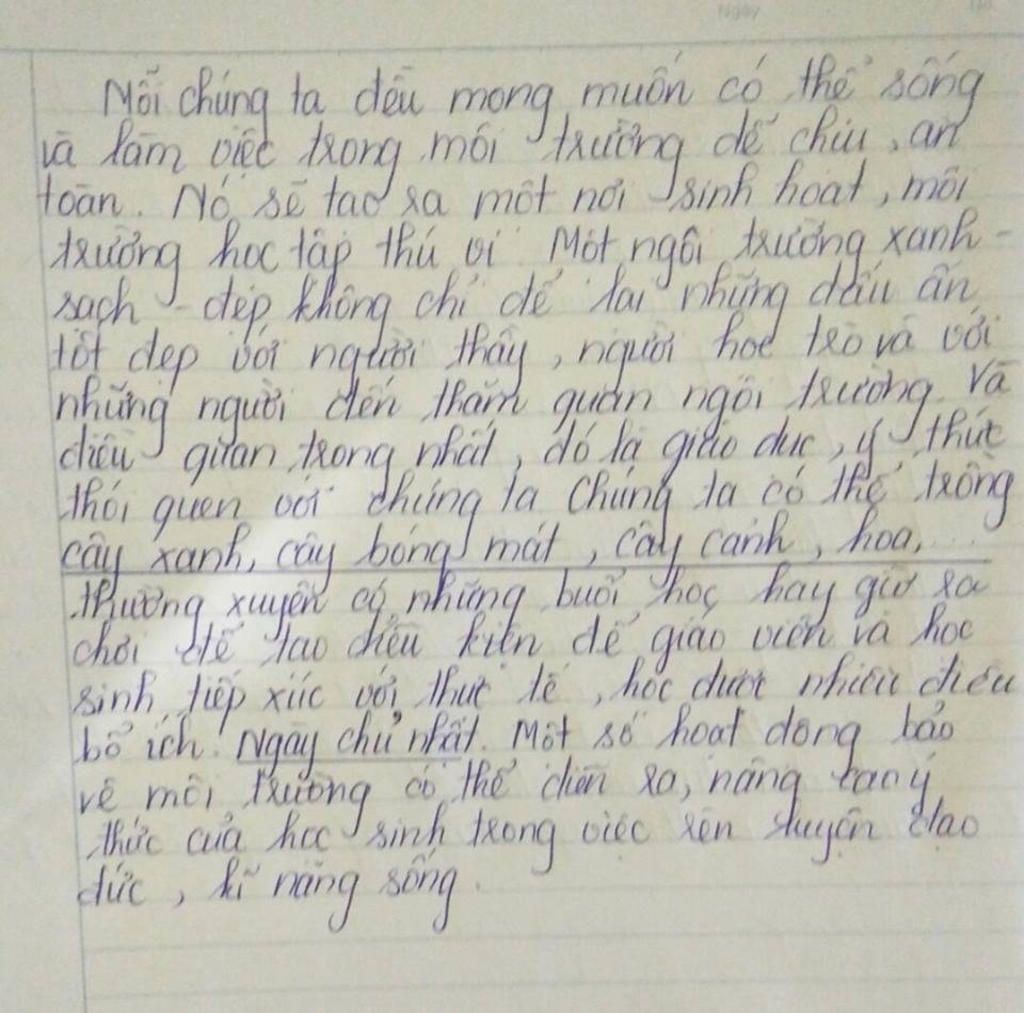 Ngày
Mỗi chúng ta đều mong muốn có thể sống
và làm việc trong môi trường dễ chịu, an
toàn. Nó sẽ tạo ra một nơi sinh hoạt, môi
trường học tập thú vị. Một ngôi trường xanh -
sạch - đẹp không chỉ để lại những dấu ấn
tốt đẹp với người thầy, người học trò và với
những người đến thăm quan ngôi trường. Và
điều quan trọng nhất, đó là giáo dục, ý thức
thói quen với chúng ta Chúng ta có thể trồng
cây xanh, cây bóng mát, cây cảnh, hoa,...
thường xuyên có những buổi học hay giờ ra
chơi để tạo điều kiện để giáo viên và học
sinh tiếp xúc với thực tế, học được nhiều điều
bổ ích. Ngày chủ nhất. Một số hoạt động bảo
vệ môi trường có thể diễn ra, nâng cao ý
thức của học sinh trong việc rèn luyện đạo
đức, kĩ năng sống.